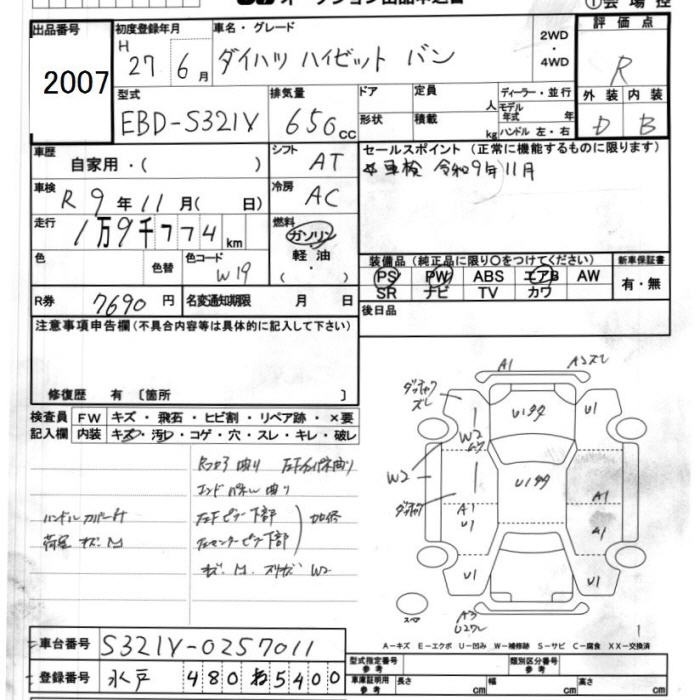 オークション出品申込書
①会場控
出品番号 2007
初度登録年月 H 27年 6月
車名・グレード ダイハツ ハイゼット バン
2WD・4WD
評価点 R
型式 EBD-S321V
排気量 650cc
ドア
形状
定員 人
積載 kg
ディーラー・並行
モデル年式 年式
ハンドル 左・右
外装 D
内装 B
車歴 自家用・( )
シフト AT
セールスポイント(正常に機能するものに限ります)
車検 令和9年11月
車検 R 9年 11月( 日)
冷房 AC
走行 1万9千774km
燃料 ガソリン・軽油・( )
色 色替
色コード W19
装備品(純正品に限り〇をつけてください)
PS PW ABS エアB AW
SR ナビ TV カワ
新車保証書 有・無
R券 7690円
名変通知期限 月 日
後日品
注意事項申告欄(不具合内容等は具体的に記入して下さい)
修復歴 有〔箇所 〕
検査員記入欄
FW キズ・飛石・ヒビ割・リペア跡・×要
内装 キズ・汚レ・コゲ・穴・スレ・キレ・破レ
エンドパネル曲り
ハンドルカバー付
左Fピラー下部
左センターピラー下部
荷室 キズ M
キズ M スリキズ W2
A1
Aズレ
U1
W2
W2
A1
U1
A1
A1
U1
U1
スペア
A3
1
A-キズ E-エクボ U-凹み W-補修跡 S-サビ C-腐食 XX-交換済
車台番号 S321V-0257011
登録番号 水戸 480 わ 5400
型式指定番号 参考
類別区分番号 参考
車庫証明用 参考 長さ cm 幅 cm 高さ cm